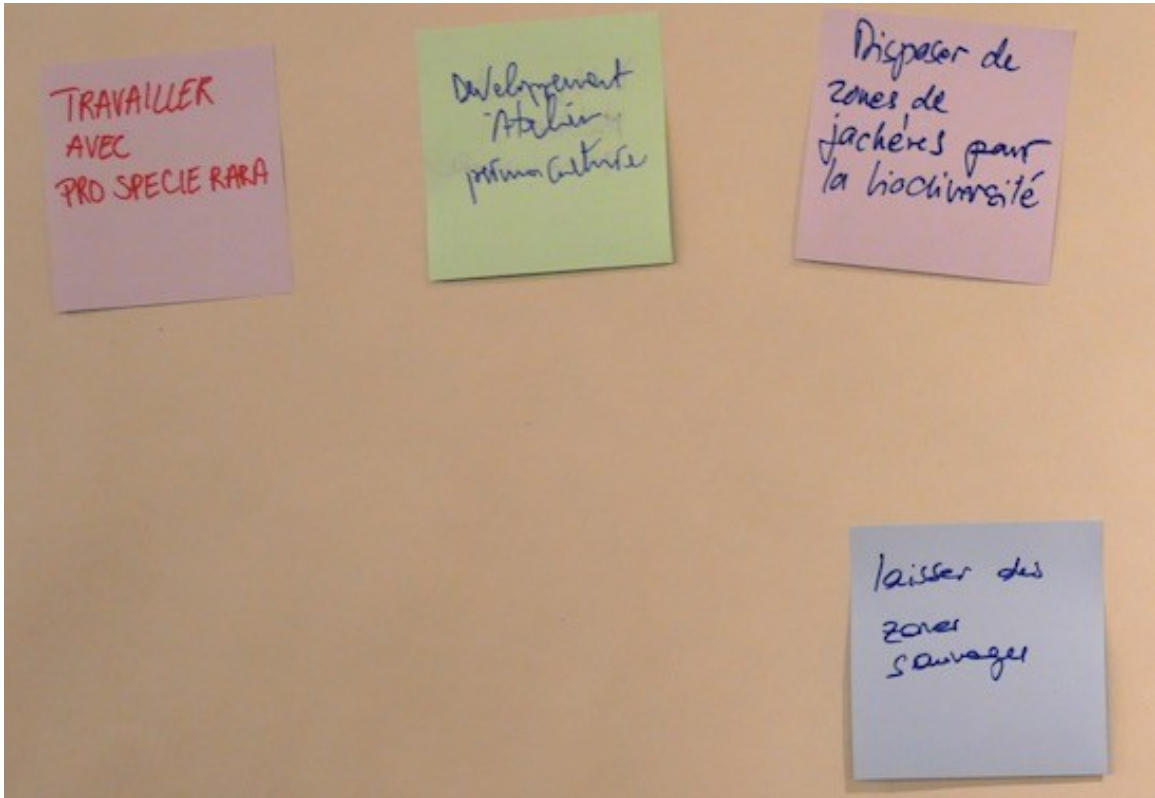 TRAVAILLER
AVEC
PRO SPECIE RARA
Développement
Atelier
permaculture
Disposer de
zones de
jachères pour
la biodiversité
laisser des
zones
sauvages